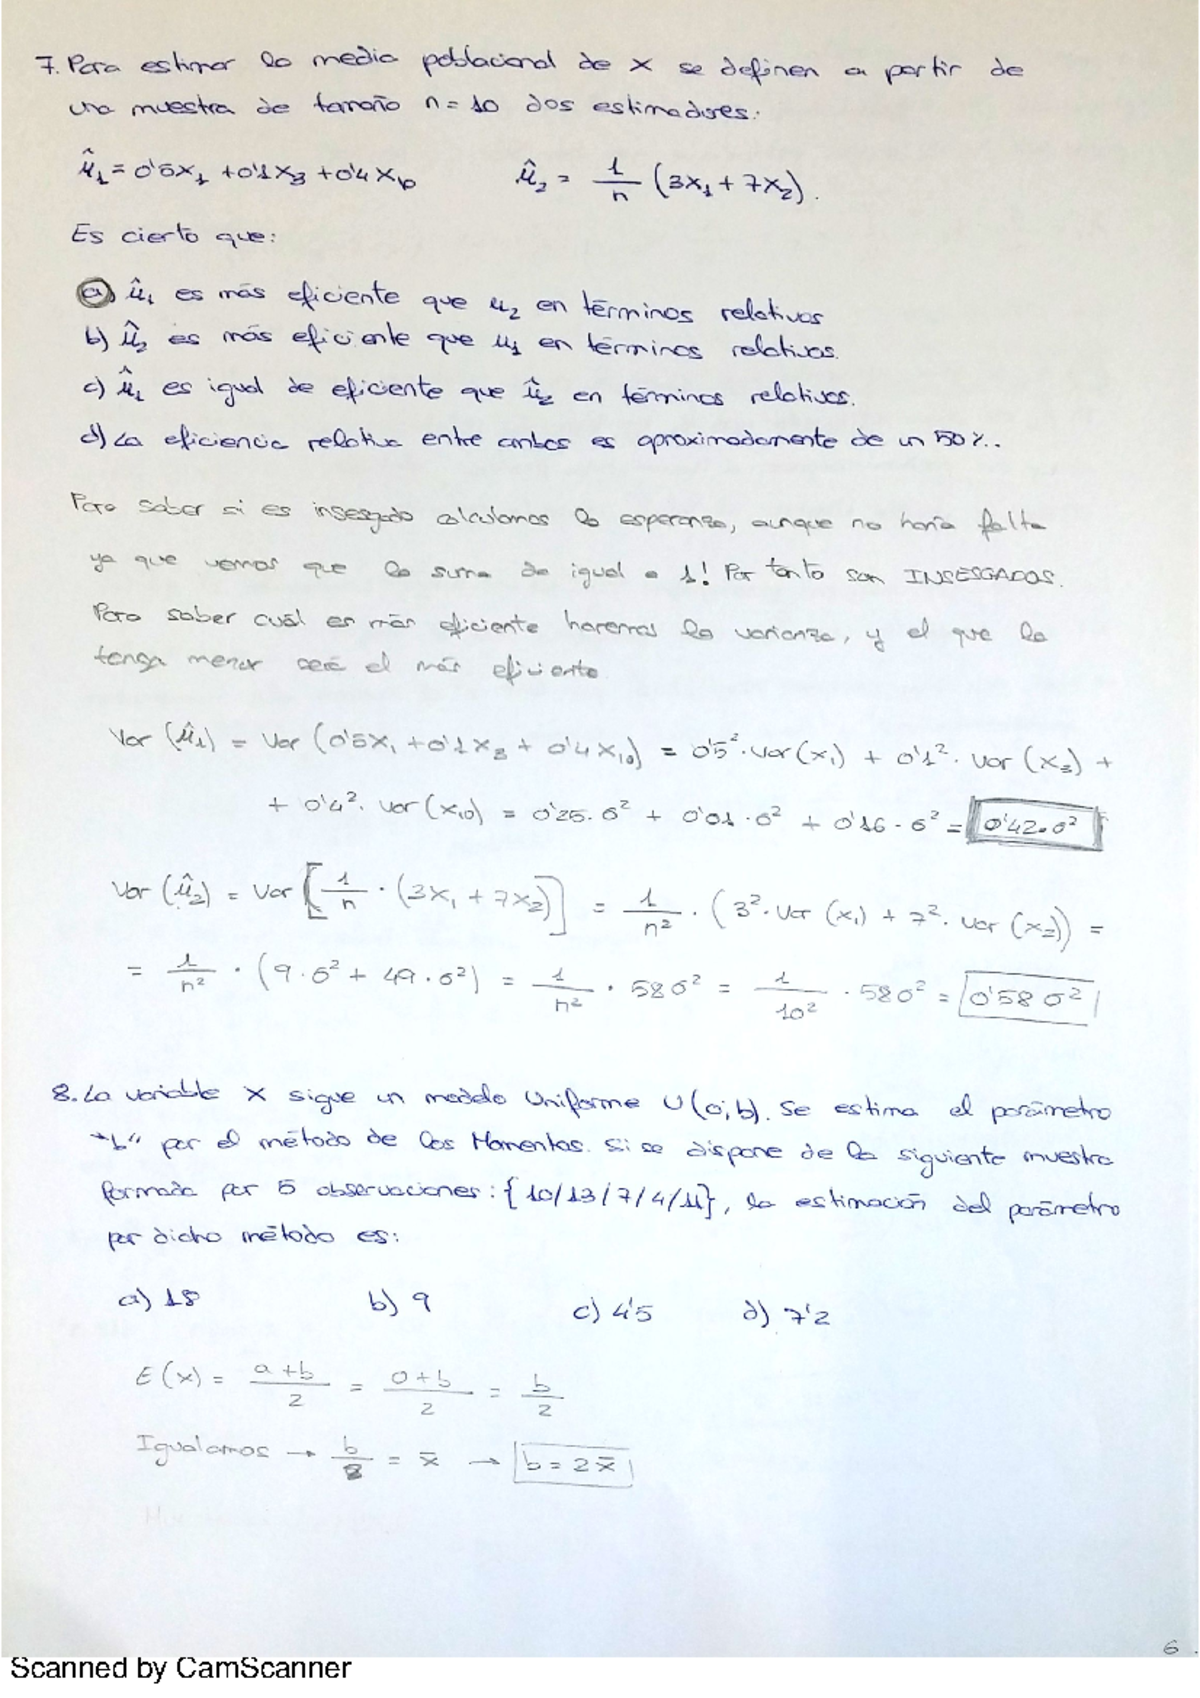 7. Para estimar la media poblacional de X se definen a partir de
una muestra de tamaño n=10 dos estimadores:
μ̂₁ = 0'5X₁ + 0'1X₃ + 0'4X₁₀ μ̂₂ = 1/n (3X₁ + 7X₂).
Es cierto que:
a) μ̂₁ es más eficiente que μ₂ en términos relativos
b) μ̂₂ es más eficiente que μ₁ en términos relativos.
c) μ̂₁ es igual de eficiente que μ̂₂ en términos relativos.
d) La eficiencia relativa entre ambos es aproximadamente de un 50%..
Para saber si es insesgado calculamos la esperanza, aunque no haría falta
ya que vemos que la suma da igual a 1! Por tanto son INSESGADOS.
Para saber cuál es más eficiente haremos la varianza, y el que la
tenga menor será el más eficiente
Var (μ̂₁) = Var (0'5X₁ + 0'1X₃ + 0'4X₁₀) = 0'5²·Var(X₁) + 0'1²·Var(X₃) +
+ 0'4²·Var(X₁₀) = 0'25·σ² + 0'01·σ² + 0'16·σ² = 0'42·σ²
Var (μ̂₂) = Var [1/n · (3X₁ + 7X₂)] = 1/n² · (3²·Var (X₁) + 7²·Var (X₂)) =
= 1/n² · (9·σ² + 49·σ²) = 1/n² · 58σ² = 1/10² · 58σ² = 0'58 σ²
8. La variable X sigue un modelo Uniforme U(0;b). Se estima el parámetro
"b" por el método de los Momentos. Si se dispone de la siguiente muestra
formada por 5 observaciones: {10/13/7/4/11}, la estimación del parámetro
por dicho método es:
a) 18 b) 9 c) 4'5 d) 7'2
E(X) = a+b/2 = 0+b/2 = b/2
Igualamos → b/2 = x̄ → b = 2x̄
6.
Scanned by CamScanner